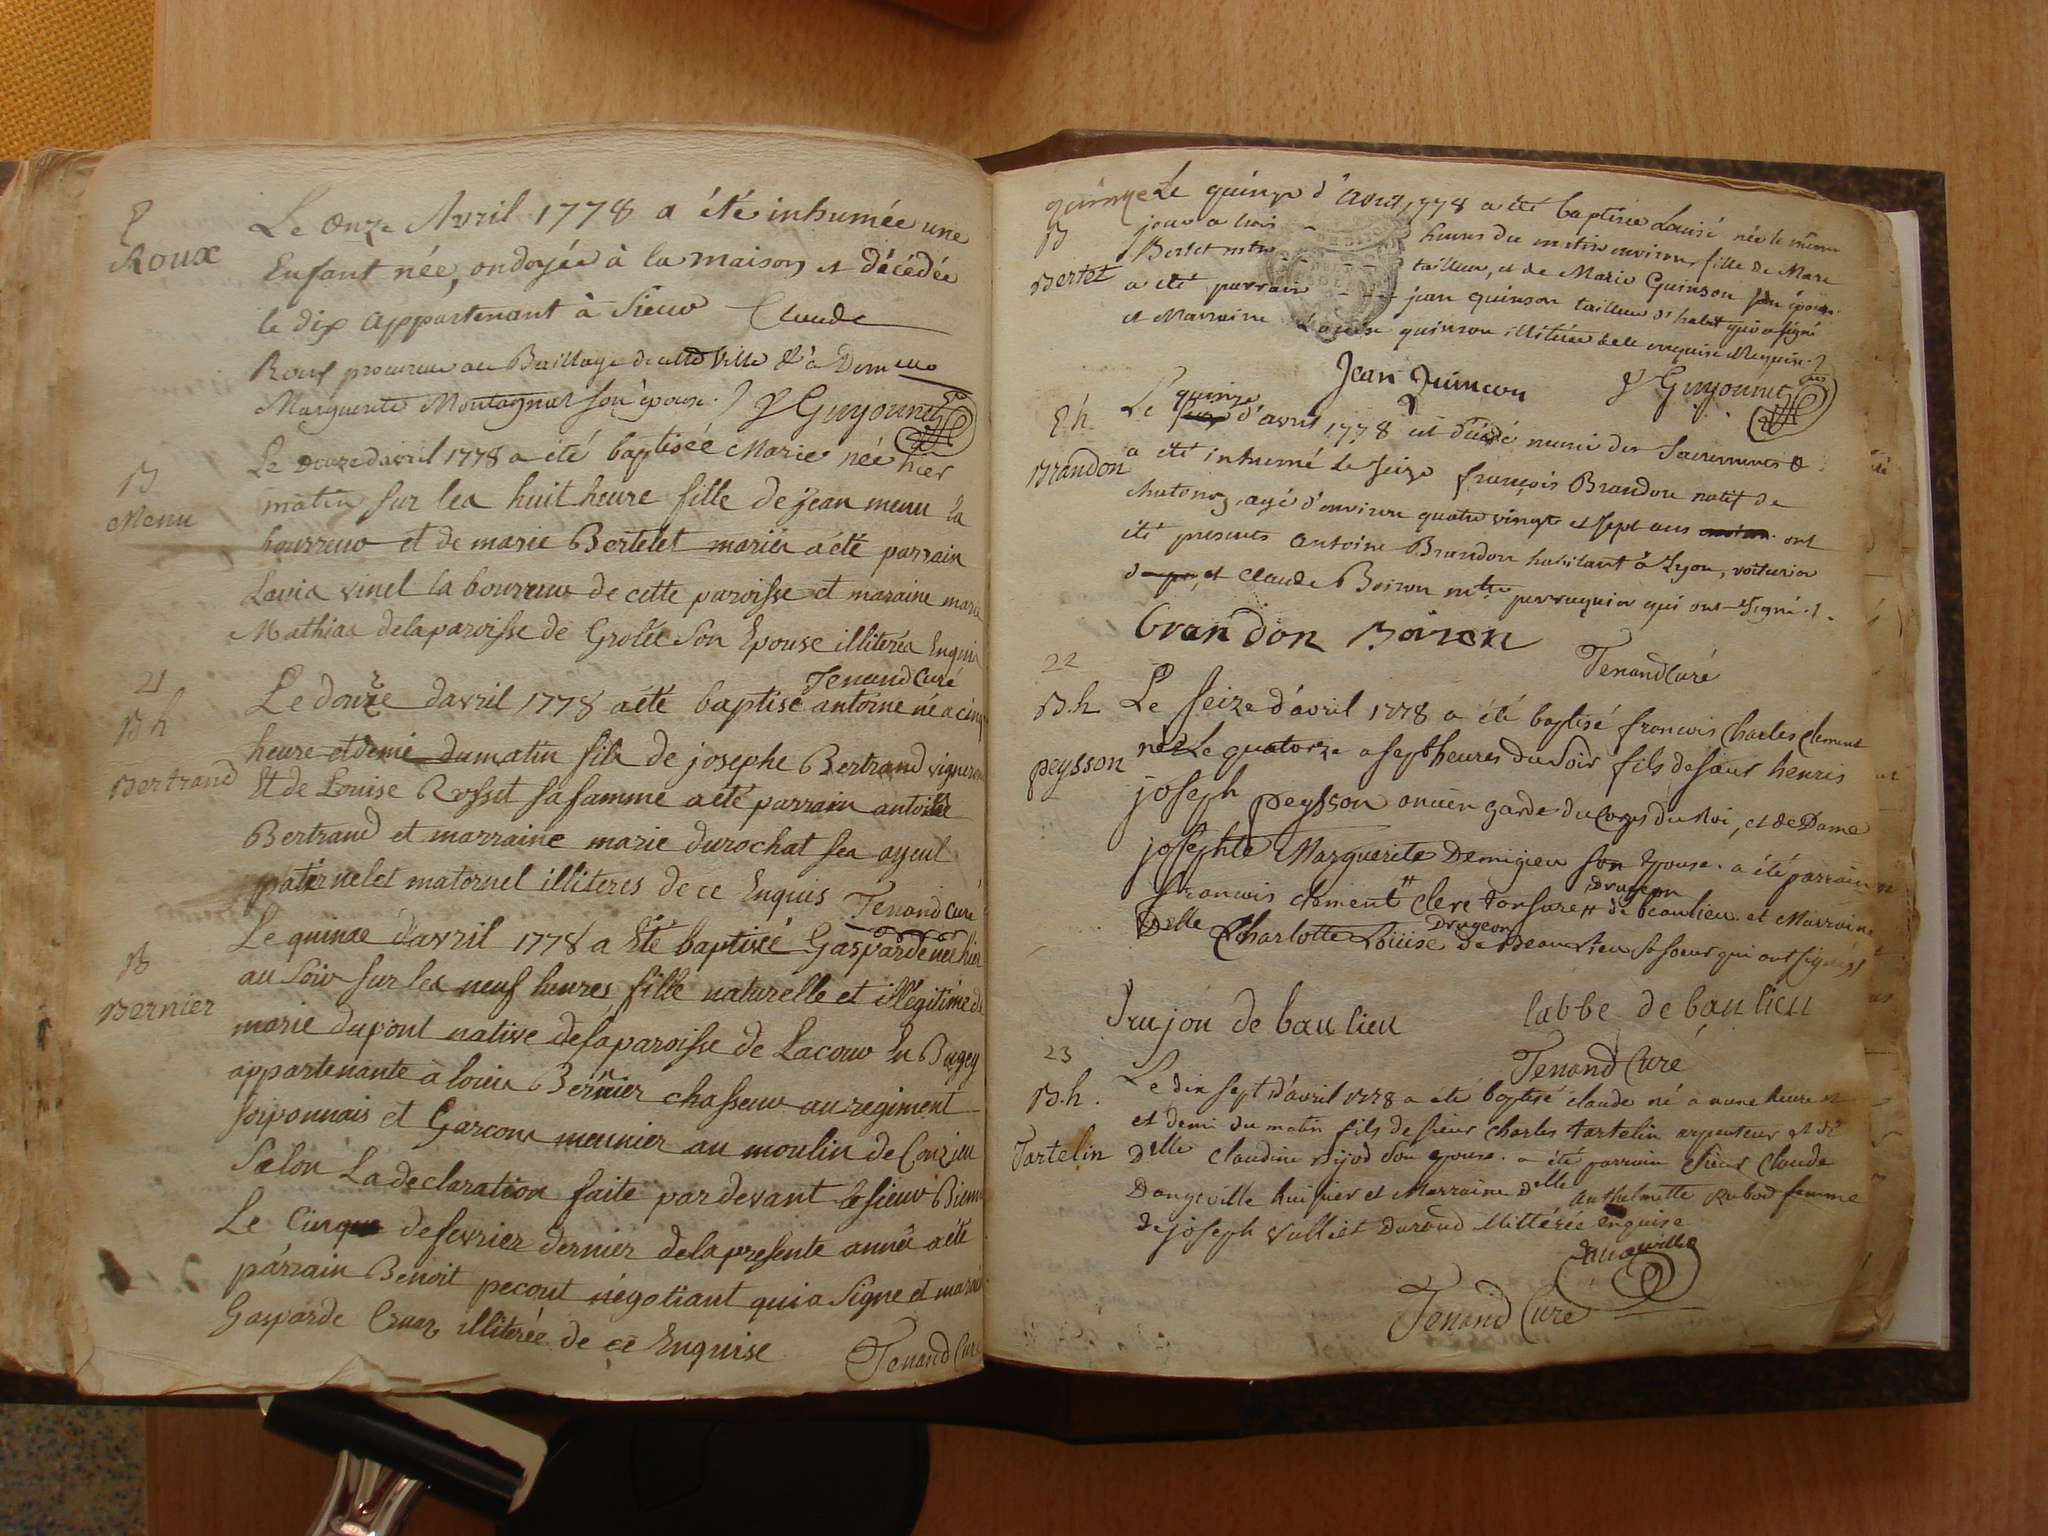 Roux
Le onze Avril 1778 a été inhumée une
Enfant née, ondoyée à la maison et décédée
le dix appartenant à Sieur Claude
Roux procureur au Bailliage de cette Ville & à Demelle
Marguerite Montagnat son épouse. J Guyonnet
B
Menu
Le douze davril 1778 a été baptisée Marie née hier
matin sur les huit heure fille de jean menu la
bourreur et de marie Bertelet mariés a été parrain
Louis vinel la boureur de cette paroisse et maraine marie
Mathias de la paroisse de Grolée son Epouse illiterés Enquis
Tenand Curé
21
B h
Bertrand
Le douze davril 1778 a été baptisé antoine né a cinq
heure et demie du matin fils de josephe Bertrand vigneron
Et de Louise Rosset sa famme a été parrain antoine
Bertrand et marraine marie durochat ses ayeul
paternel et maternel illiteres de ce Enquis Tenand Curé
B
Bernier
Le quinze davril 1778 a Eté baptisée Gasparde née hier
au soir sur les neuf heures fille naturelle et illégitime de
marie dupont native de la paroisse de Lacour En Bugey
appartenante a louis Bernier chasseur au regiment
soiponnais et Garcons meunier au moulin de Conzieu
Selon La declaration faite par devant le sieur
Le Cinq de fevrier dernier de la presente année a été
parrain Benoit pecout négotiant qui a Signe et marai
Gasparde Cruaz illiterée de ce Enquise Tenand Curé
quinze
B
Bertet
Le quinze d'avril 1778 a été baptisée Louise née le même
jour a trois heures du matin environ, fille de Marc
Bertet mtre tailleur, et de Marie Quinson son épouse.
a été parrain jean quinson tailleur d'habit qui a signé
et Marraine Louise quinson illitérée de ce enquise Requise. /
Jean Quincon J Guyonnet
B.h
Brandon
Le quinze d'avril 1778 est décédé muni des Sacrements &
a été inhumé le seize françois Brandon natif de
Chatonay agé d'environ quatre vingts et sept ans ont
été presents antoine Brandon habitant à Lyon, voiturier
et claude Boiron mtre perruquier qui ont signé. /.
brandon Boiron
Tenand Curé
22
B.h
peysson
Le Seize d'avril 1778 a été baptisé francois Charles clement
né Le quatorze a sept heures du Soir fils de Sieur henris
joseph peysson ancien garde du Corps du Roi, et de Dame
josephte Marguerite Demigieu son Epouse. a été parrain
francois clement clerc tonsuré drugeon de beaulieu. et Marraine
Delle Charlotte Louise Drugeon de Beaulieu sa soeur qui ont signés
drujon de baulieu labbe de baulieu
Tenand Curé
23
B.h.
Tartelin
Le dix sept d'avril 1778 a été baptisé claude né a une heure
et demi du matin fils de sieur Charles tartelin arpenteur et de
Delle Claudine Dijod son epouse. a été parrain Sieur Claude
Dangeville huissier et Marraine Delle Anthelmette Rubod femme
de joseph Vulliet Durand Illittérée enquise
Dangeville
Tenand Curé